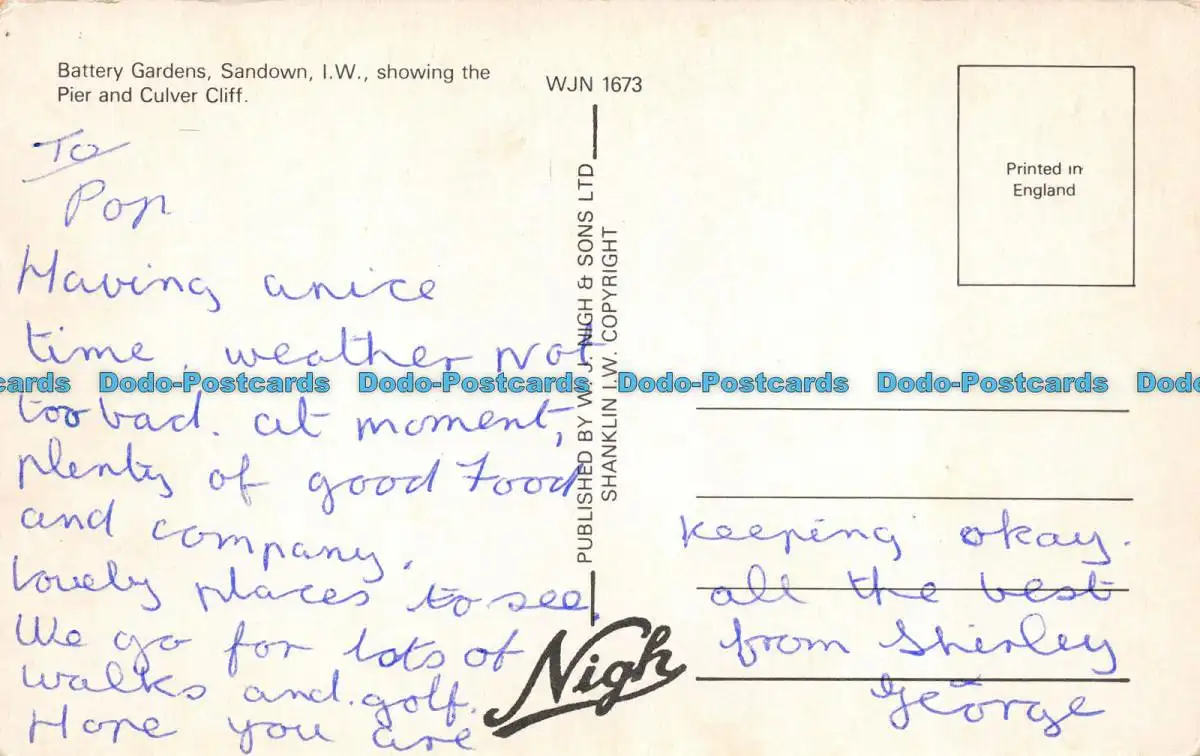 Battery Gardens, Sandown, I.W., showing the
Pier and Culver Cliff.
WJN 1673
Printed in
England
PUBLISHED BY W. J. NIGH & SONS LTD
SHANKLIN I.W. COPYRIGHT
To
Pop
Having a nice
time, weather not
too bad. at moment,
plenty of good Food
and company.
Lovely places to see.
We go for lots of
walks and golf.
Hope you are
keeping okay.
all the best
from Shirley
George
Nigh
cards Dodo-Postcards Dodo-Postcards Dodo-Postcards Dodo-Postcards Dodo